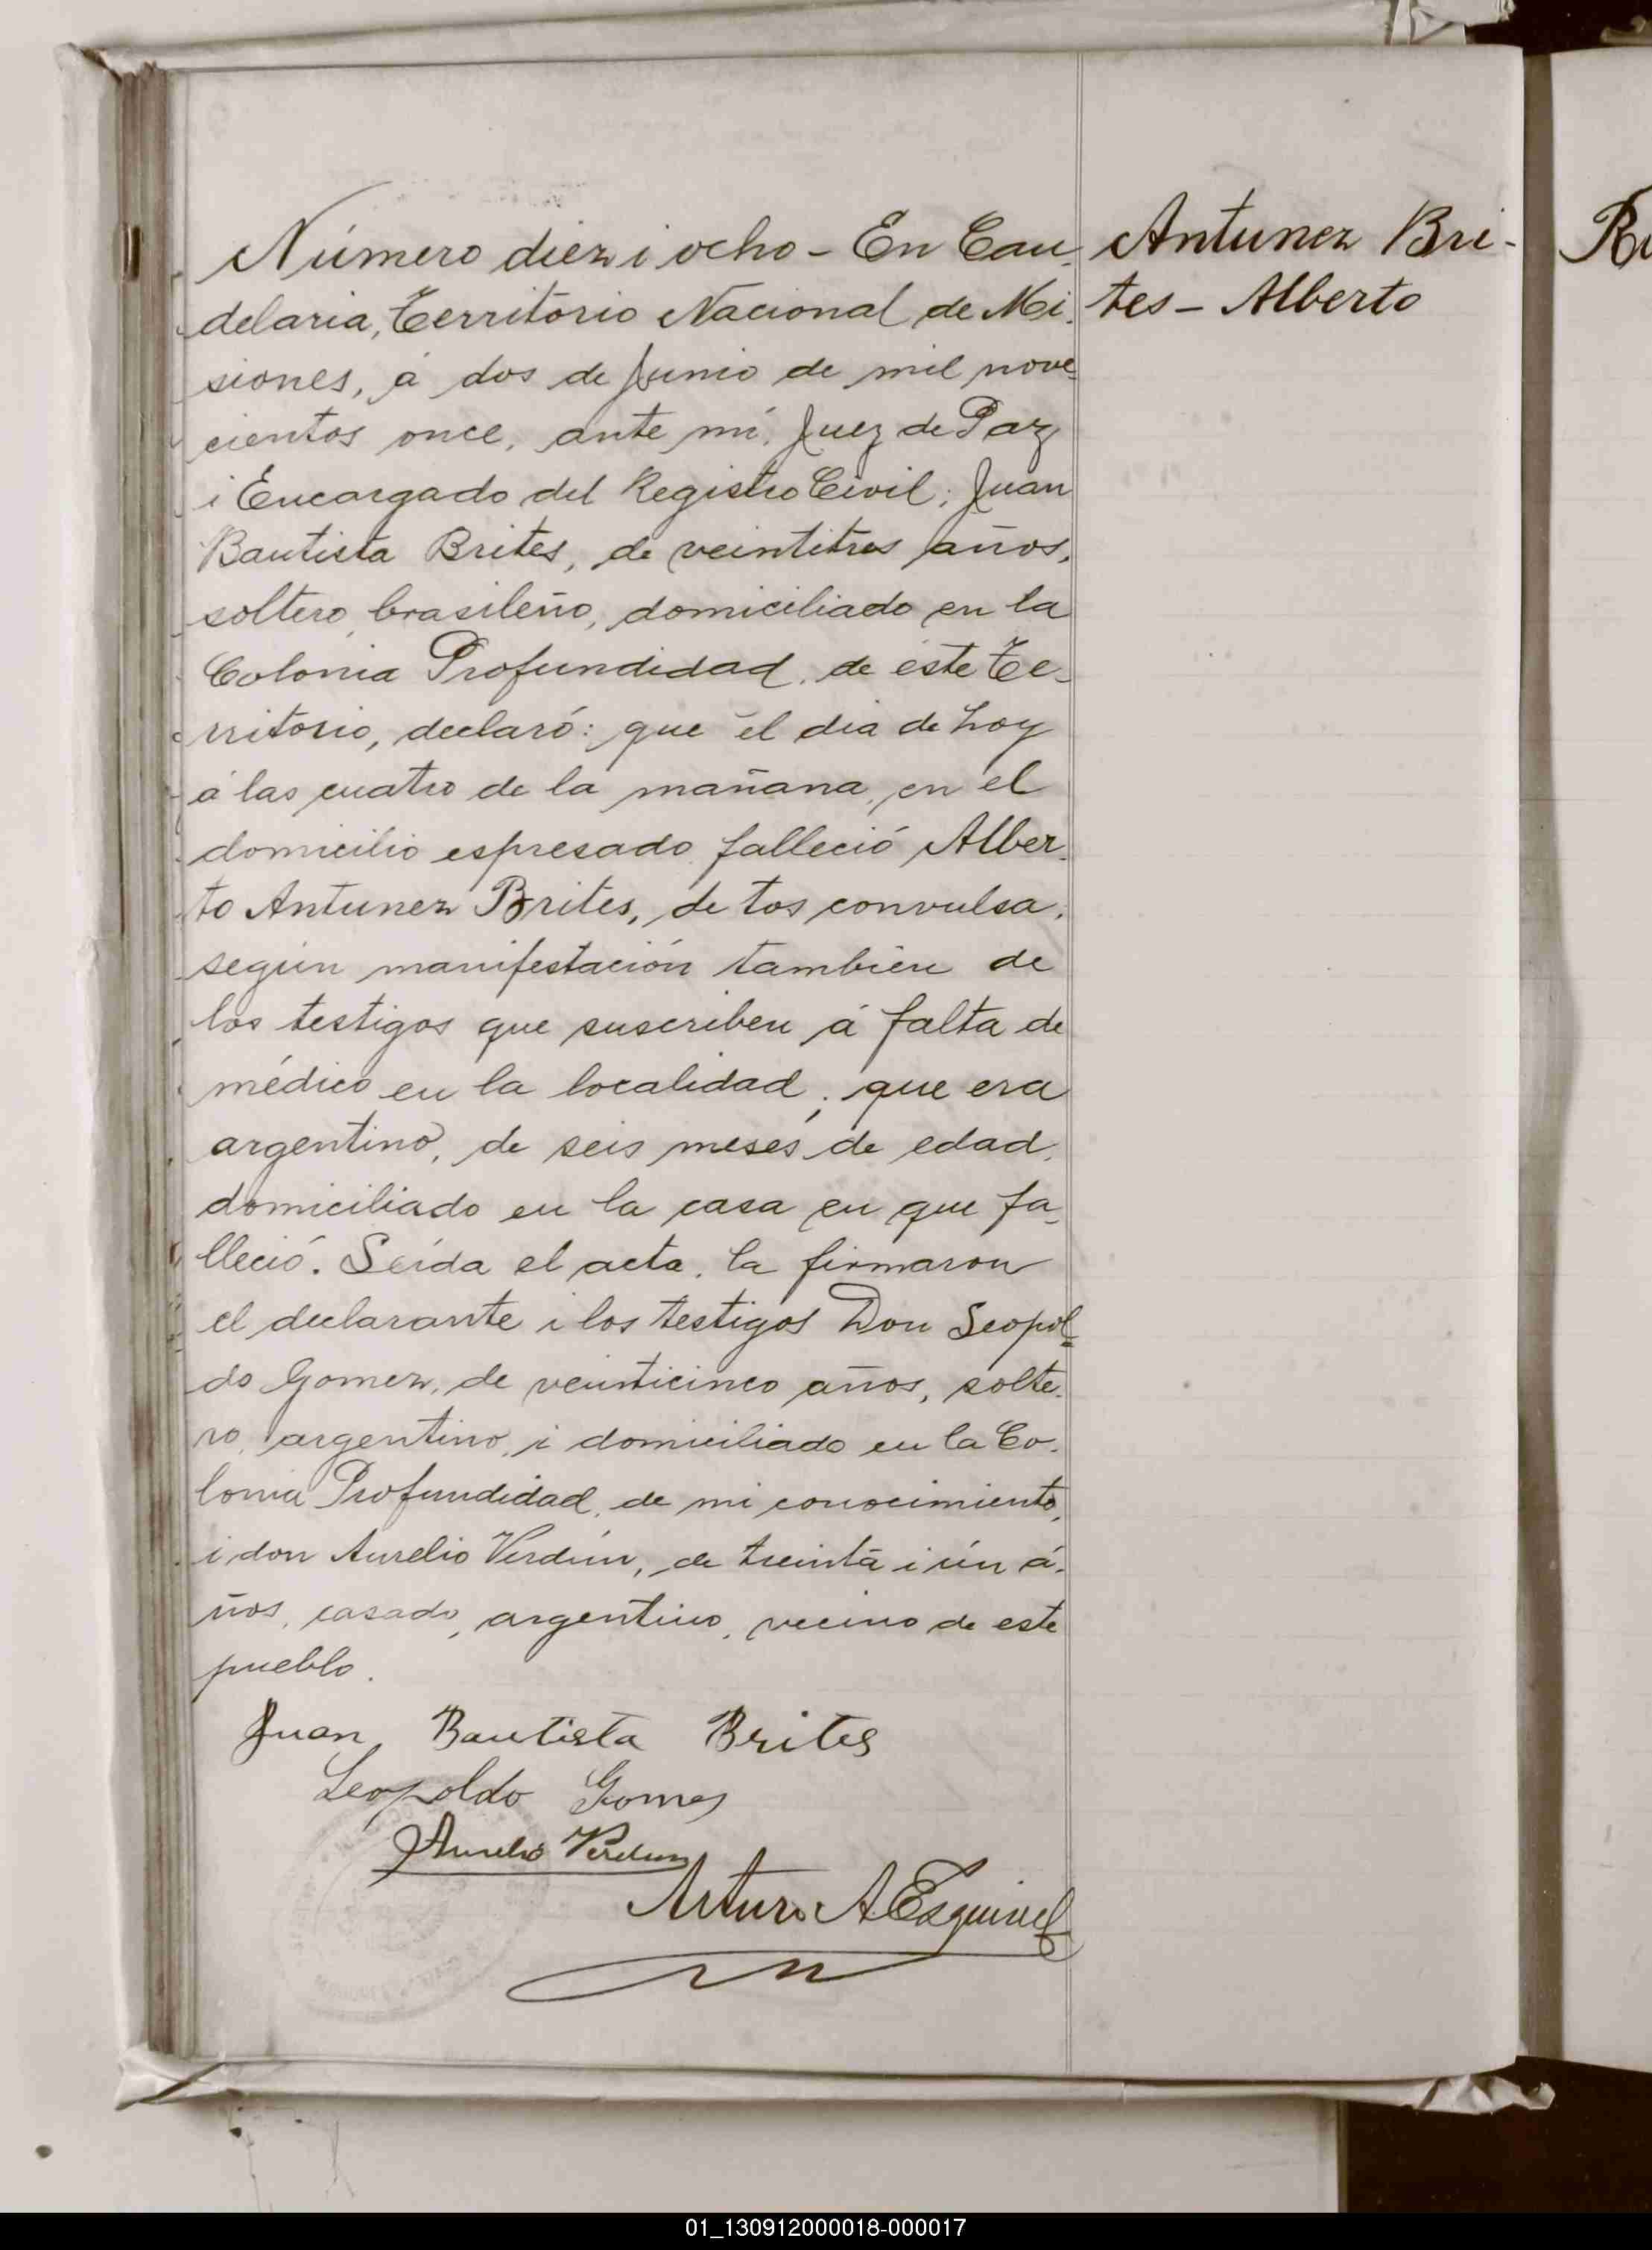 Antunez Bri-
tes - Alberto
Número diez i ocho - En Can-
delaria, Territorio Nacional de Mi-
siones, á dos de Junio de mil nove-
cientos once, ante mí, Juez de Paz
i Encargado del Registro Civil; Juan
Bautista Brites, de veintitres años,
soltero, brasileño, domiciliado en la
Colonia Profundidad, de éste Te-
rritorio, declaró: que el dia de hoy
á las cuatro de la mañana, en el
domicilio espresado, falleció Alber-
to Antunez Brites, de tos convulsa,
según manifestación tambien de
los testigos que suscriben á falta de
médico en la localidad; que era
argentino, de seis meses de edad,
domiciliado en la casa en que fa-
lleció. Leída el acta, la firmaron
el declarante i los testigos Don Leopol-
do Gomez, de veinticinco años, solte-
ro, argentino, i domiciliado en la Co-
lonia Profundidad, de mi conocimiento,
i don Aurelio Verdún, de treinta i ún á-
ños, casado, argentino, vecino de este
pueblo.
Juan Bautista Brites
Leopoldo Gomes
Aurelio Verdun
Arturo A. Esquivel
01_130912000018-000017